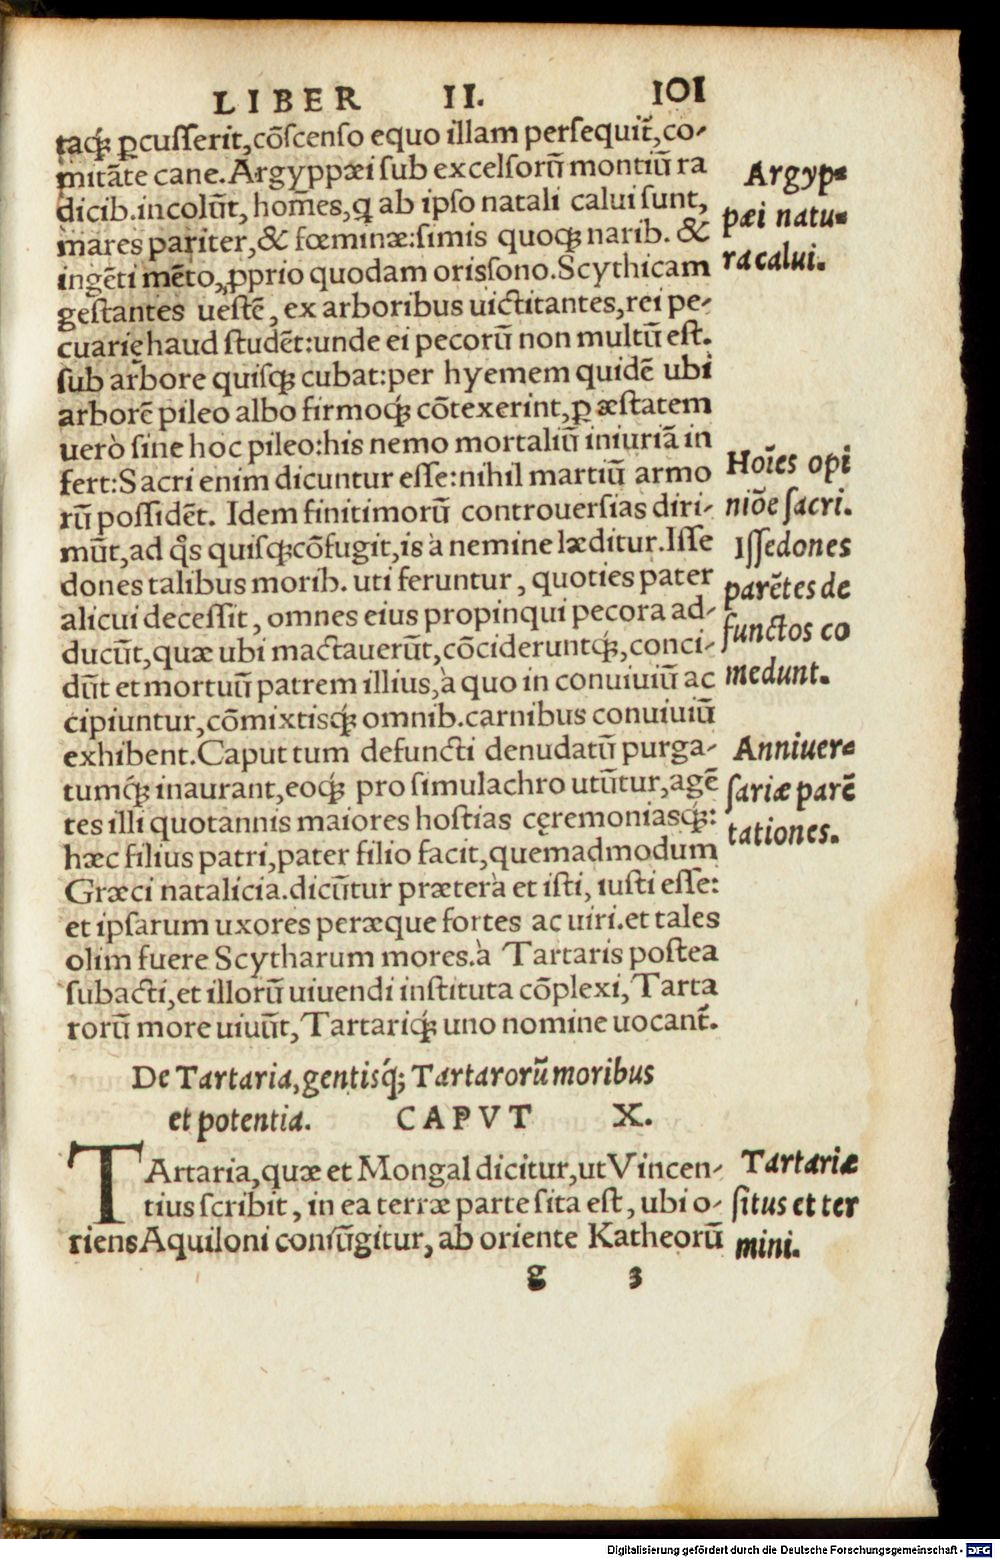 LIBER II. 101
taq́ꝫ ꝑcuſſerit, cōſcenſo equo illam perſequit᷑, co-
mitāte cane. Argyppæi ſub excelſorū montiū ra
dicib. incolūt, hom̄es, q ab ipſo natali calui ſunt,
mares pariter, & fœminæ: ſimis quoqꝫ narib. &
ingēti mēto, ꝓprio quodam oris ſono. Scythicam
geſtantes ueſtē, ex arboribus uictitantes, rei pe-
cuarię haud ſtudēt: unde ei pecorū non multū eſt.
ſub arbore quiſqꝫ cubat: per hyemem quidē ubi
arborē pileo albo firmoq́ꝫ cōtexerint, ꝑ æſtatem
uerò ſine hoc pileo: his nemo mortaliū iniuriā in
fert: Sacri enim dicuntur eſſe: nihil martiū armo
rū poſſidēt. Idem finitimorū controuerſias diri-
mūt, ad q̊s quiſqꝫ cōfugit, is à nemine læditur. Iſſe
dones talibus morib. uti feruntur, quoties pater
alicui deceſſit, omnes eius propinqui pecora ad-
ducūt, quæ ubi mactauerūt, cōcideruntq́ꝫ, conci-
dūt et mortuū patrem illius, à quo in conuiuiū ac
cipiuntur, cōmixtisq́ꝫ omnib. carnibus conuiuiū
exhibent. Caput tum defuncti denudatū purga-
tumq́ꝫ inaurant, eoq́ꝫ pro ſimulachro utūtur, agē
tes illi quotannis maiores hoſtias cęremoniasq́ꝫ:
hæc filius patri, pater filio facit, quemadmodum
Græci natalicia. dicūtur præterà et iſti, iuſti eſſe:
et ipſarum uxores peræque fortes ac uiri. et tales
olim fuere Scytharum mores. à Tartaris poſtea
ſubacti, et illorū uiuendi inſtituta cōplexi, Tarta
rorū more uiuūt, Tartariq́ꝫ uno nomine uocant᷑.
Argyp=
pæi natu=
ra calui.
Hoīes opi
niōe ſacri.
Iſſedones
parētes de
functos co
medunt.
Anniuer=
ſariæ parē
tationes.
De Tartaria, gentisq́; Tartarorū moribus
et potentia. CAPVT X.
TArtaria, quæ et Mongal dicitur, ut Vincen-
tius ſcribit, in ea terræ parte ſita eſt, ubi o-
riens Aquiloni coniūgitur, ab oriente Katheorū
Tartariæ
ſitus et ter
mini.
g 3
Digitalisierung gefördert durch die Deutsche Forschungsgemeinschaft - DFG